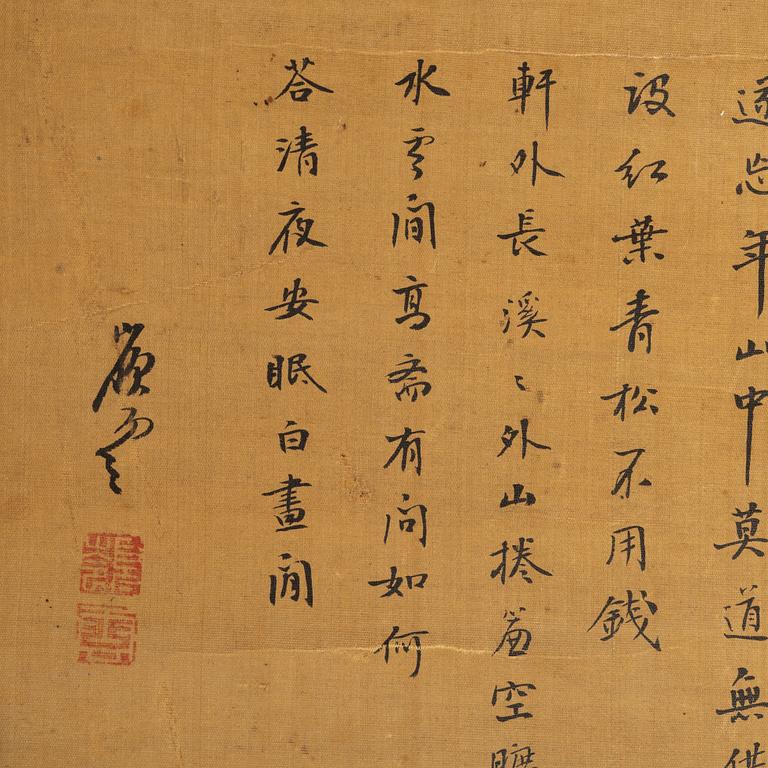 年山中莫道無供
設紅葉青松不用錢
軒外長溪〻外山捲簾空曠
水雲間高斋有問如何
荅清夜安眠白晝閒